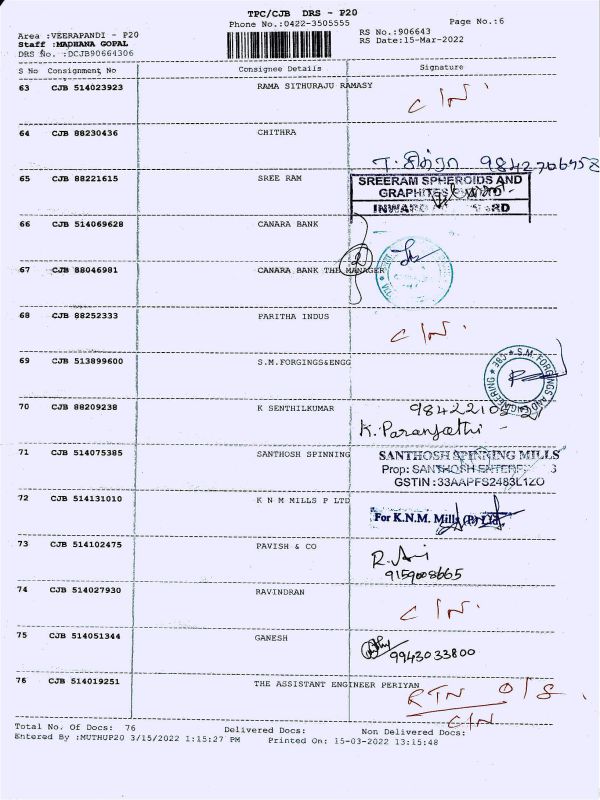 TPC/CJB DRS - P20
Phone No.:0422-3505555 Page No.:6
Area :VEERAPANDI - P20 RS No.:906643
Staff :MADHANA GOPAL RS Date:15-Mar-2022
DRS No. :DCJB90664306
S No Consignment No Consignee Details Signature
63 CJB 514023923 RAMA SITHURAJU RAMASY C/N
64 CJB 88230436 CHITHRA
சித்ரா 9842706458
65 CJB 88221615 SREE RAM SREERAM SPHEROIDS AND
GRAPHITES
66 CJB 514069628 CANARA BANK
67 CJB 88046981 CANARA BANK THE MANAGER
68 CJB 88252333 PARITHA INDUS C/N.
69 CJB 513899600 S.M.FORGINGS&ENGG S.M. FORGINGS AND ENGINEERING
70 CJB 88209238 K SENTHILKUMAR
K. Paranjothi
71 CJB 514075385 SANTHOSH SPINNING SANTHOSH SPINNING MILLS
Prop: SANTHOSH
GSTIN :33AAPFS2483L1ZO
72 CJB 514131010 K N M MILLS P LTD For K.N.M. Mills (P) Ltd
73 CJB 514102475 PAVISH & CO
9159008665
74 CJB 514027930 RAVINDRAN C/N.
75 CJB 514051344 GANESH 9943033800
76 CJB 514019251 THE ASSISTANT ENGINEER PERIYAN RTN O/S.
C/N
Total No. Of Docs: 76 Delivered Docs: Non Delivered Docs:
Entered By :MUTHUP20 3/15/2022 1:15:27 PM Printed On: 15-03-2022 13:15:48